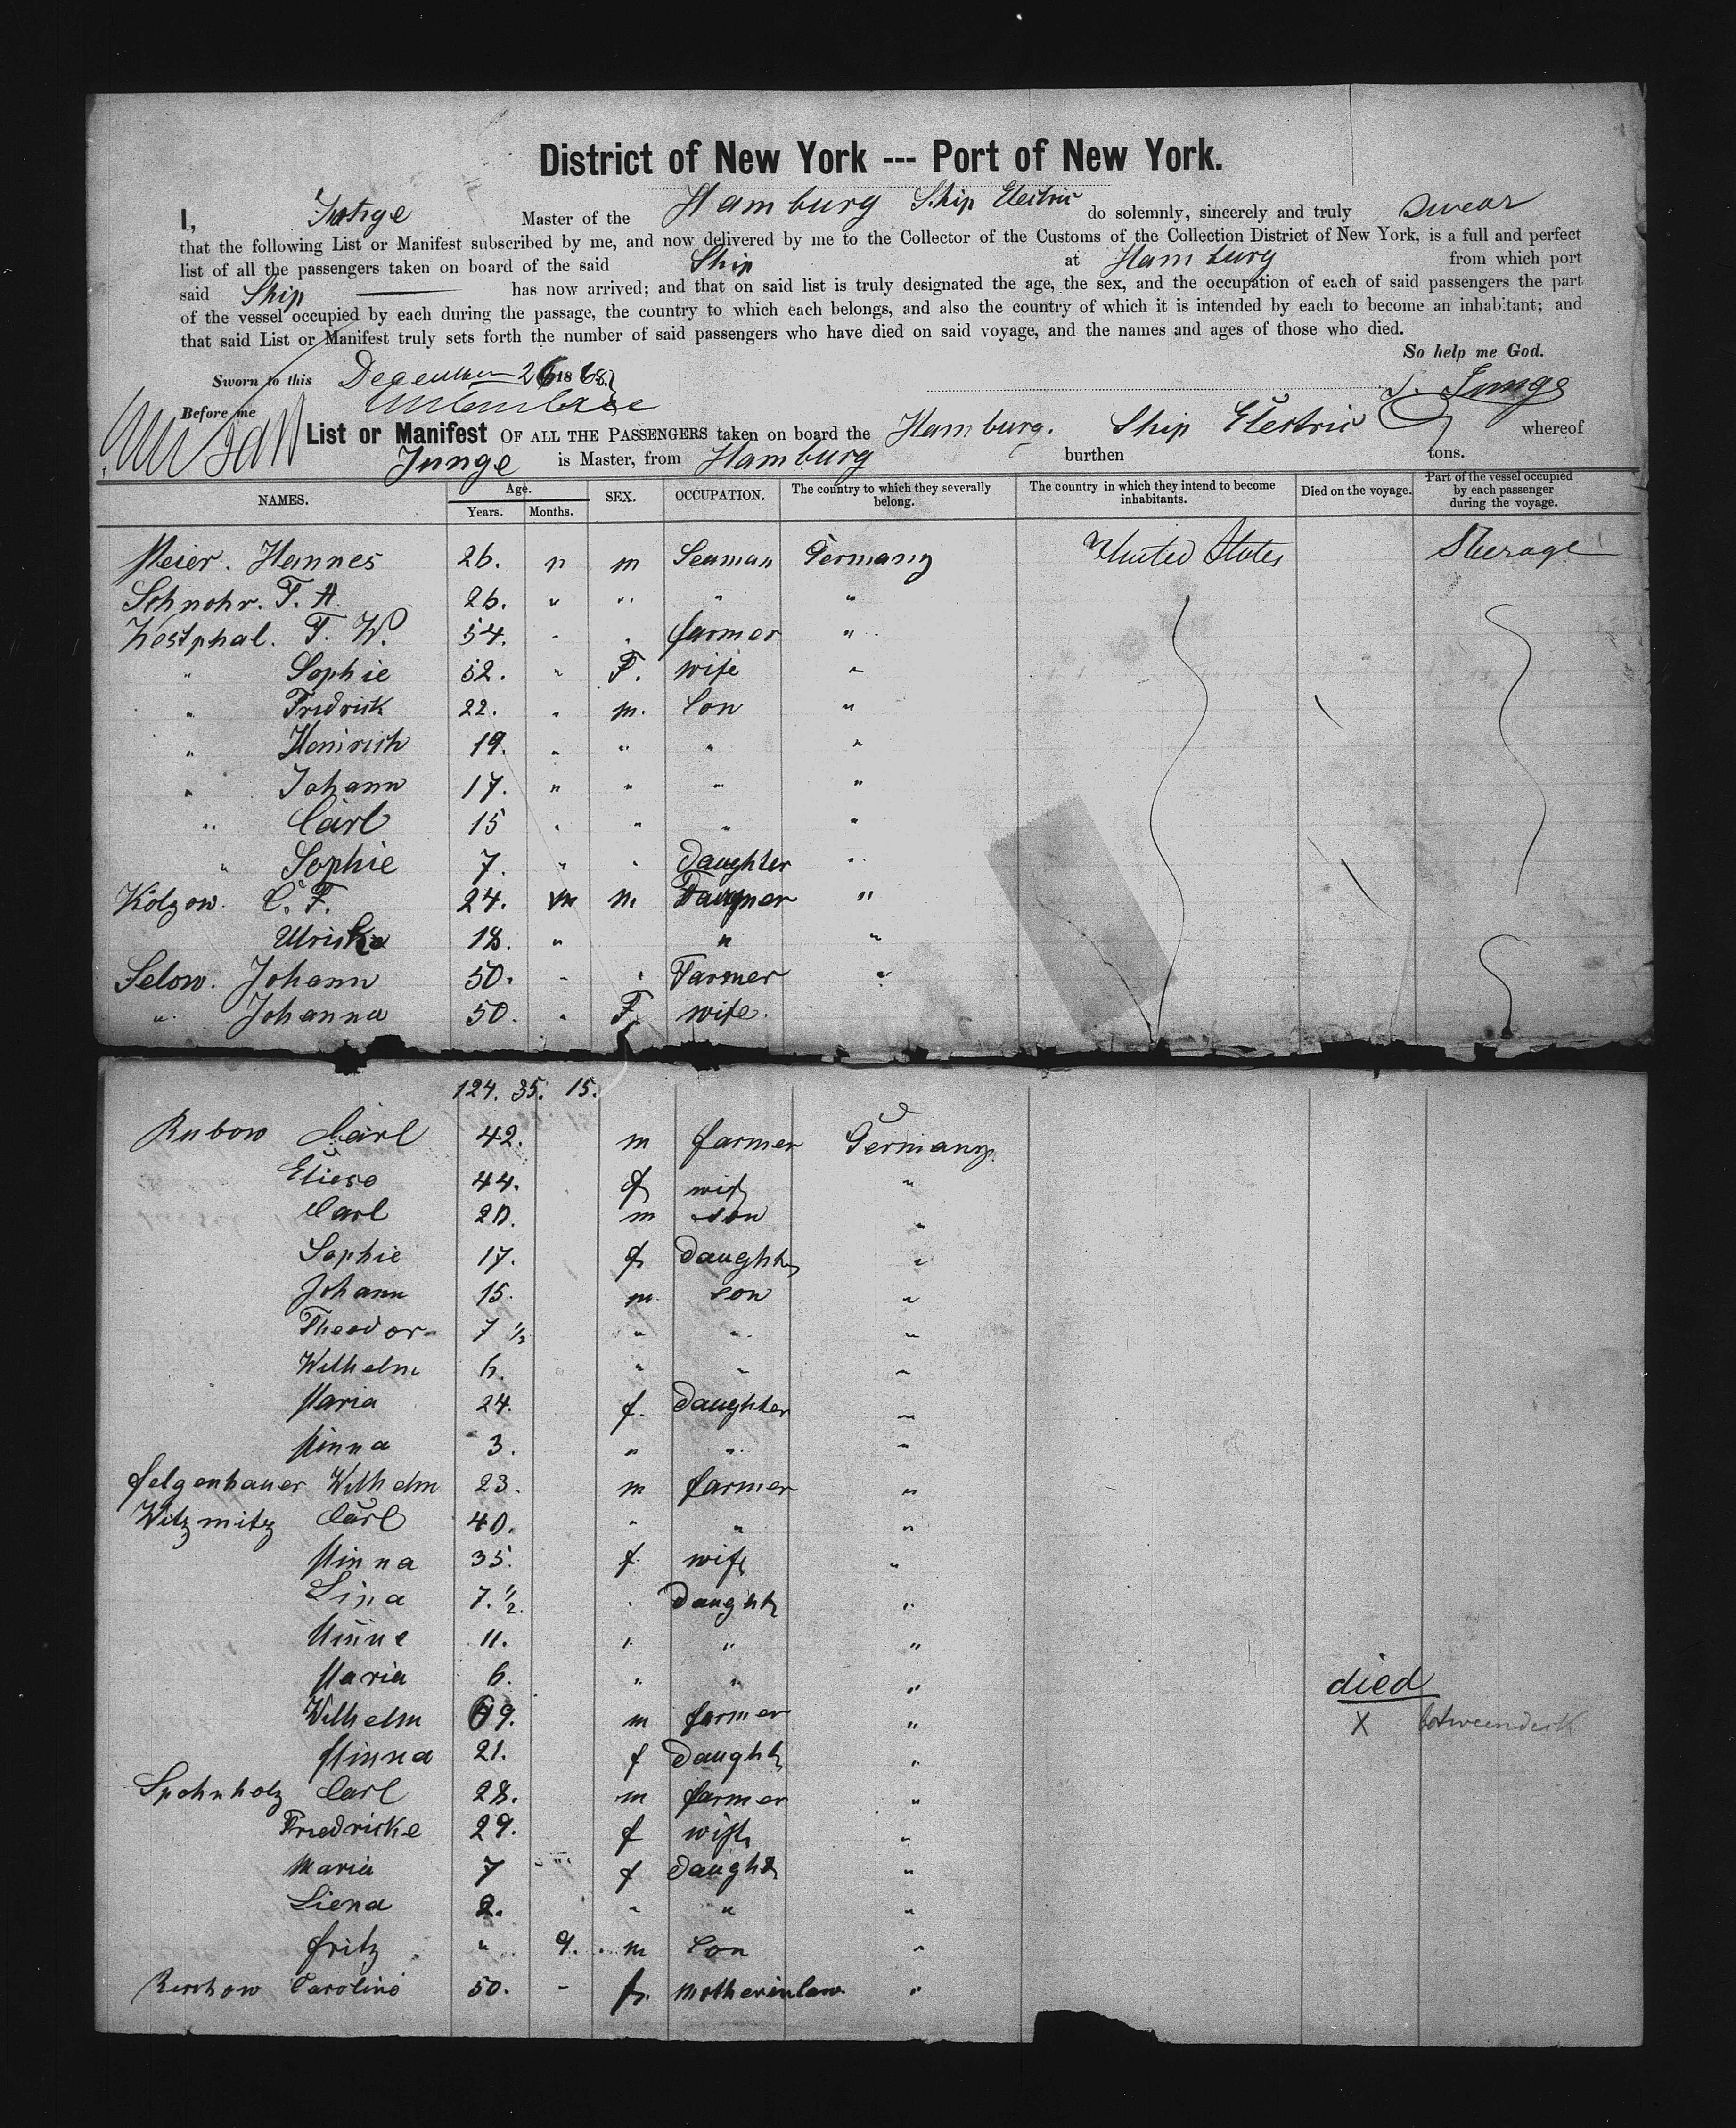 District of New York --- Port of New York.
I, Junge Master of the Hamburg Ship Electric do solemnly, sincerely and truly swear
that the following List or Manifest subscribed by me, and now delivered by me to the Collector of the Customs of the Collection District of New York, is a full and perfect
list of all the passengers taken on board of the said Ship at Hamburg from which port
said Ship has now arrived; and that on said list is truly designated the age, the sex, and the occupation of each of said passengers the part
of the vessel occupied by each during the passage, the country to which each belongs, and also the country of which it is intended by each to become an inhabitant; and
that said List or Manifest truly sets forth the number of said passengers who have died on said voyage, and the names and ages of those who died.
So help me God.
Sworn to this December 26 1868 J. Junge
Before me
List or Manifest OF ALL THE PASSENGERS taken on board the Hamburg. Ship Electric whereof
Junge is Master, from Hamburg burthen tons.
NAMES. Age. Years. Months. SEX. OCCUPATION. The country to which they severally belong. The country in which they intend to become inhabitants. Died on the voyage. Part of the vessel occupied by each passenger during the voyage.
Meier. Hannes 26. " m Seaman Germany United States Steerage
Schnohr. F. A. 26. " " " "
Westphal. F. W. 54. " " farmer "
" Sophie 52. " F. wife "
" Fridrick 22. " m. Son "
" Heinrich 19. " " " "
" Johann 17. " " " "
" Carl 15 " " " "
" Sophie 7. " " daughter "
Kolzow. C. F. 24. m "
Ulricka 18. " " "
Selow. Johann 50. " " Farmer "
" Johanna 50. " F. wife.
124. 35. 15.
Rubow Carl 42. m farmer Germany
Eliese 44. f wife "
Carl 20. m son "
Sophie 17. f daughter "
Johann 15. m. son "
Theodor 7 1/2 " " "
Wilhelm 6. " " "
Maria 24. f. daughter "
Minna 3. " " "
felgenhauer Wilhelm 23. m farmer "
Witzmitz Carl 40. " " "
Minna 35. f wife "
Lina 7. 1/2. " daught "
Minne 11. " " "
Maria 6. " " " died
Wilhelm 19. m farmer " X betweendeck
Minna 21. f daught "
Spohnholz Carl 28. m farmer "
Friedricke 29. f wife "
Maria 7 f daught "
Liena 2. " " "
fritz " 9. m Son "
Caroline 50. - f. motherinlaw "